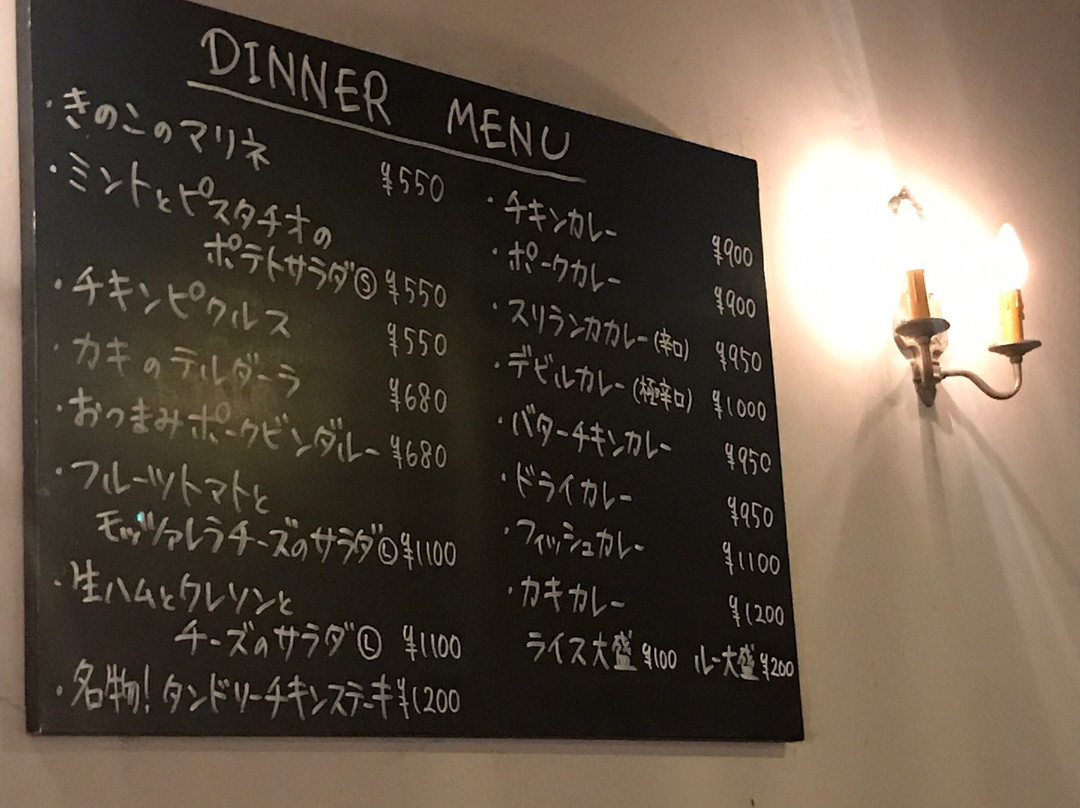 DINNER MENU
・きのこのマリネ ¥550
・ミントとピスタチオの
ポテトサラダⓈ ¥550
・チキンピクルス ¥550
・カキのテルダーラ ¥680
・おつまみポークビンダルー ¥680
・フルーツトマトと
モッツァレラチーズのサラダⓁ ¥1100
・生ハムとクレソンと
チーズのサラダⓁ ¥1100
・名物!タンドリーチキンステーキ ¥1200
・チキンカレー ¥900
・ポークカレー ¥900
・スリランカカレー(辛口) ¥950
・デビルカレー(極辛口) ¥1000
・バターチキンカレー ¥950
・ドライカレー ¥950
・フィッシュカレー ¥1100
・カキカレー ¥1200
ライス大盛 ¥100 ルー大盛 ¥200